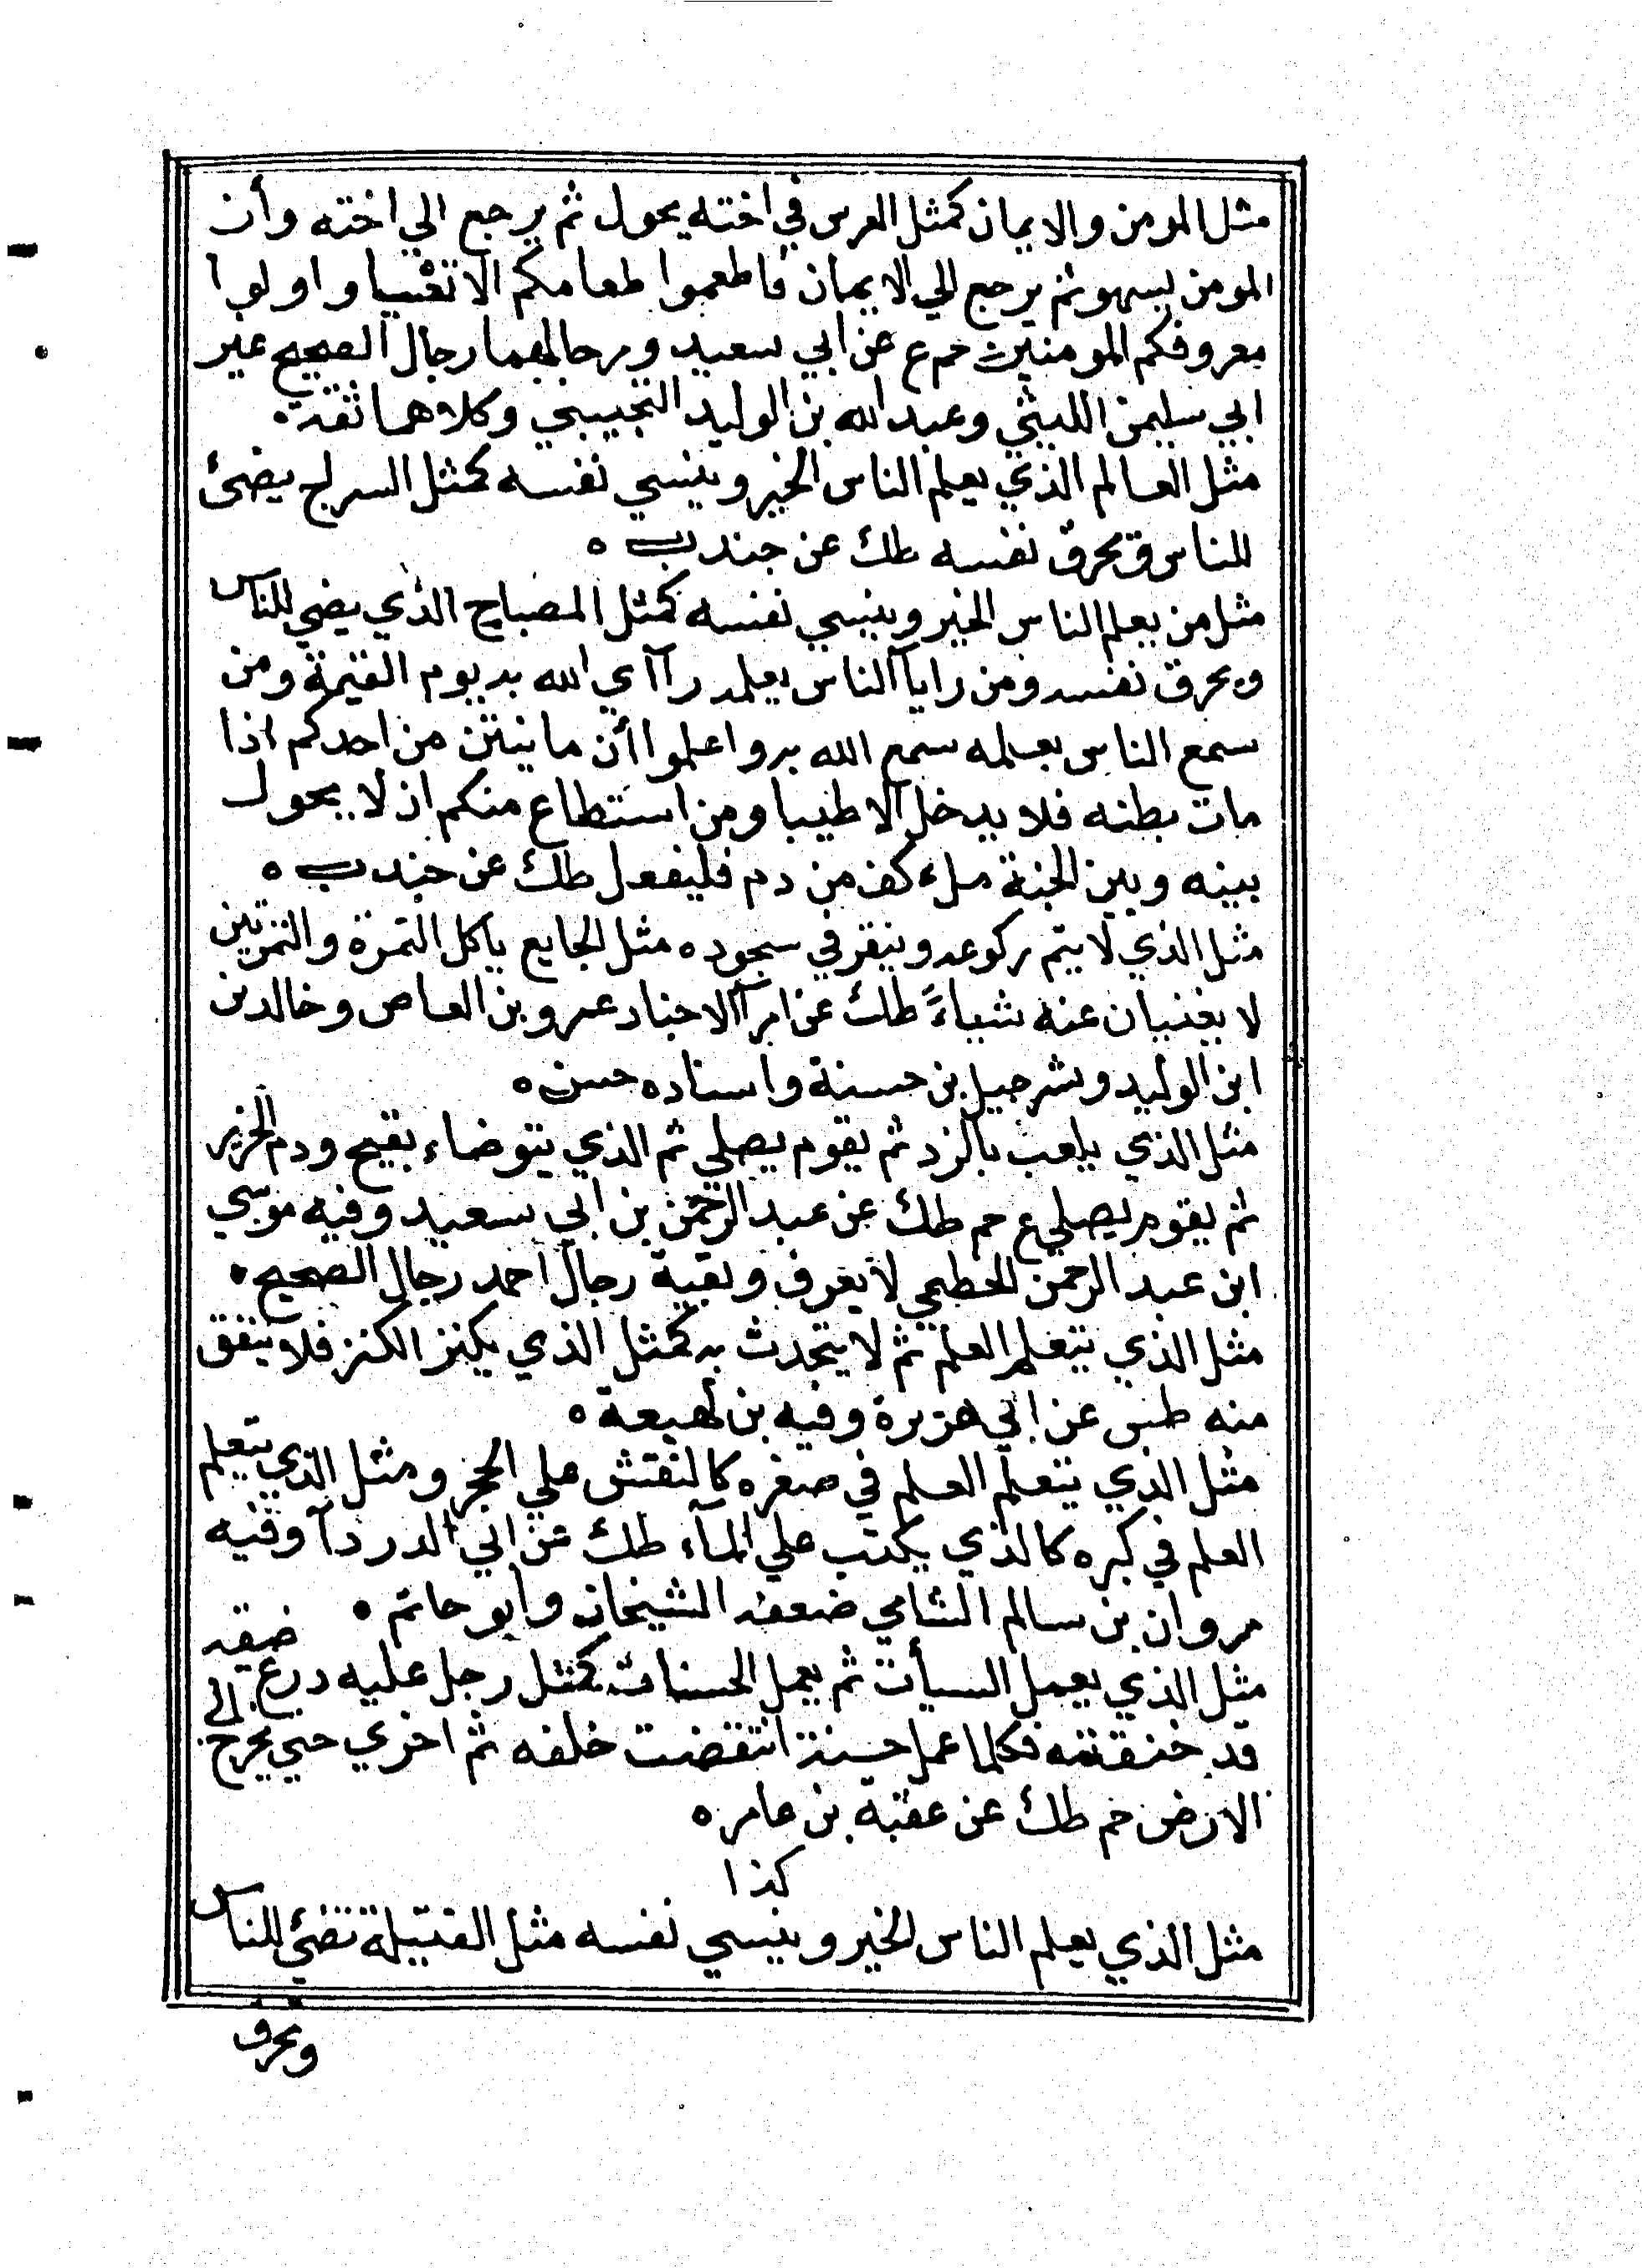 مثل المومن والايمان كمثل الفرس في اخته يحول ثم يرجع الي اخته وأن
المومن ليسهو ثم يرجع الي الايمان فاطعموا طعامكم الاتقيا واولوا
معروفكم المومنين حم ع عن ابي سعيد ورجالهما رجال الصحيح غير
ابي سليمن الليثي وعبد الله بن الوليد التجيبي وكلاهما ثقة.
مثل العالم الذي يعلم الناس الخير وينسي نفسه كمثل السراج يضئ
للناس ويحرق نفسه طك عن جندب ه
مثل من يعلم الناس الخير وينسي نفسه كمثل المصباح الذي يضي للناس
ويحرق نفسه ومن رايا الناس بعلمه راآي الله به يوم القيمة ومن
سمع الناس بعمله سمع الله به واعلموا أن ما ينتن من احدكم اذا
مات بطنه فلا يدخل الا طيبا ومن استطاع منكم ان لا يحول
بينه وبين الجنة ملء كف من دم فليفعل طك عن جندب ه
مثل الذي لا يتم ركوعه وينقر في سجوده مثل الجايع ياكل التمرة والتمرتين
لا يغنيان عنه شياءً طك عن امرآ الاجناد عمرو بن العاص وخالد بن
ابن الوليد وشرحبيل بن حسنة واسناده حسن ه
مثل الذي يلعب بالنرد ثم يقوم يصلي ثم الذي يتوضاء بقيح ودم الخنزير
ثم يقوم يصلي ع حم طك عن عبد الرحمن بن ابي سعيد وفيه موسي
ابن عبد الرحمن الخطمي لا يعرف وبقية رجال احمد رجال الصحيح.
مثل الذي يتعلم العلم ثم لا يتحدث به كمثل الذي يكنز الكنز فلا ينفق
منه طس عن ابي هريرة وفيه بن لهيعة ه
مثل الذي يتعلم العلم في صغره كالنقش علي الحجر ومثل الذي يتعلم
العلم في كبره كالذي يكتب علي المآء طك عن ابي الدردآ وفيه
مروان بن سالم الشامي ضعفه الشيخان وابو حاتم.
مثل الذي يعمل السيأت ثم يعمل الحسنات كمثل رجل عليه درع ضيقه
قد خنقته فكلما عمل حسنة انتقضت خلفه ثم اخري حتي يخرج الي
الارض حم طك عن عقبه بن عامر ه
كذا
مثل الذي يعلم الناس الخير وينسي نفسه مثل الفتيلة تضئ للناس
ويحرق